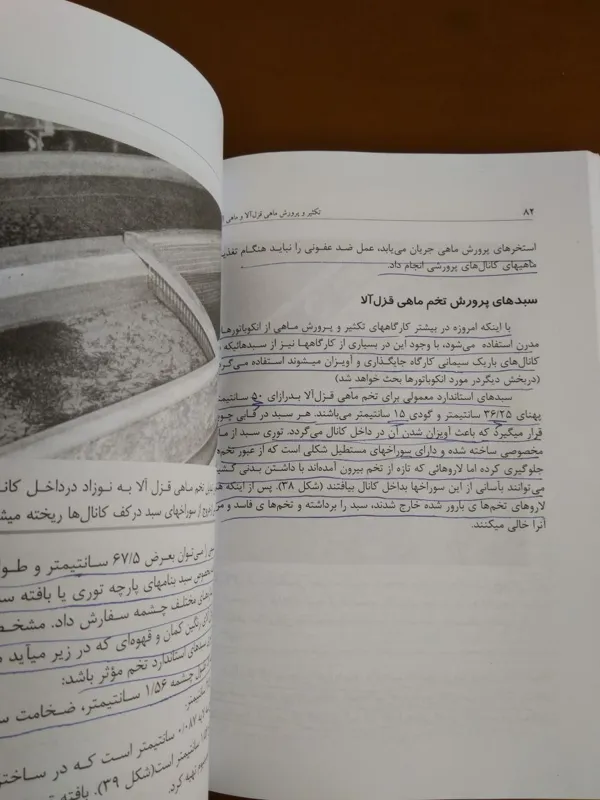 ۸۲
تکثیر و پرورش ماهی قزل‌آلا و ماهی
استخرهای پرورش ماهی جریان می‌یابد، عمل ضد عفونی را نباید هنگام
ماهیهای کانال‌های پرورشی انجام داد.
سبدهای پرورش تخم ماهی قزل‌آلا
با اینکه امروزه در بیشتر کارگاههای تکثیر و پرورش ماهی از انکوباتورها
مدرن استفاده می‌شود، با وجود این در بسیاری از کارگاهها نیز از سبدهائیکه
کانال‌های باریک سیمانی کارگاه جایگذاری و آویزان میشوند استفاده
(دربخش دیگردر مورد انکوباتورها بحث خواهد شد)
سبدهای استاندارد معمولی برای تخم ماهی قزل‌آلا بدرازای ۵۰ سانتیمتر
پهنای ۳۶/۲۵ سانتیمتر و گودی ۱۵ سانتیمتر می‌باشند. هر سبد در قابی
قرار میگیرد که باعث آویزان شدن آن در داخل کانال می‌گردد. توری سبد از
مخصوصی ساخته شده و دارای سوراخهای مستطیل شکلی است که از عبور
جلوگیری کرده اما لاروهائی که تازه از تخم بیرون آمده‌اند با داشتن بدنی
می‌توانند بآسانی از این سوراخها بداخل کانال بیافتند (شکل ۳۸). پس از اینکه
لاروهای تخم‌های بارور شده خارج شدند، سبد را برداشته و تخم‌های فاسد و
آنرا خالی میکنند.
تخم ماهی قزل آلا به نوزاد درداخل
از سوراخهای سبد درکف کانال‌ها ریخته
می‌توان بعرض ۶۷/۵ سانتیمتر و
سبد بنامهای پارچه توری یا بافته
مختلف چشمه سفارش داد.
رنگین کمان و قهوه‌ای که در زیر میآید
سبدهای استاندارد تخم مؤثر باشد:
چشمه ۱/۵۶ سانتیمتر، ضخامت
سانتیمتر.
۰/۰۸۷ سانتیمتر است که در
سانتیمتر است(شکل ۳۹). بافته
تهیه کرد.